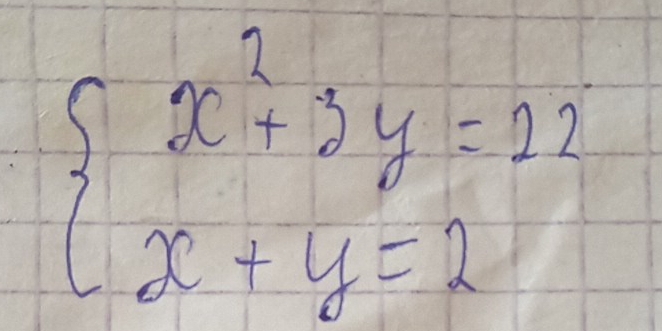 x² + 3y = 22
x + y = 2